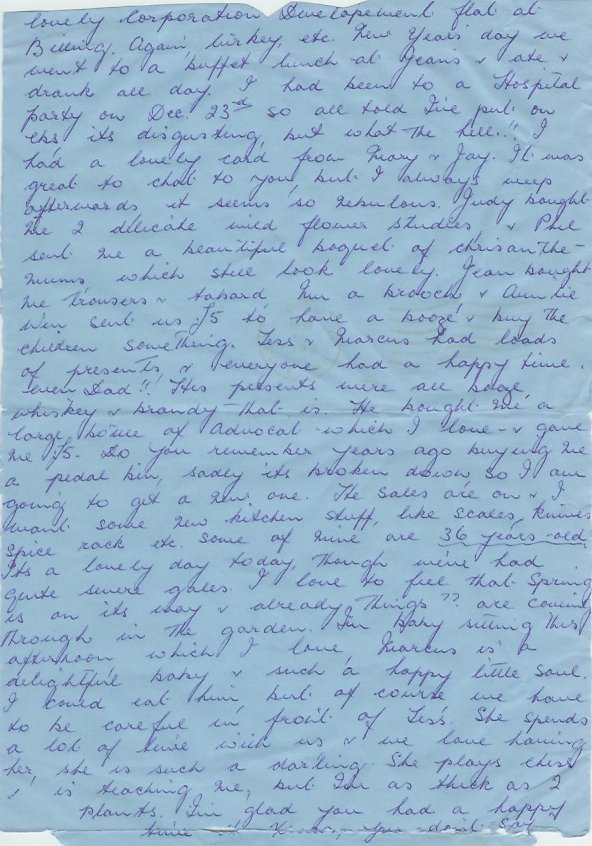 lovely Corporation Developement flat at
Billing. Again turkey, etc. New Years day we
went to a buffet lunch at Jeans & ate &
drank all day. I had been to a Hospital
party on Dec. 23rd so all told I've put on
lbs its disgusting, but what the hell!! I
had a lovely card from Mary & Jay. It was
great to chat to you, but I always weep
afterwards it seems so nebulous. Judy bought
me 2 delicate wild flower studies & Phil
sent me a beautiful boquet of chrisanthe-
mums which still look lovely. Jean bought
me trousers & tabard Mu a brooch & Auntie
Win sent us £5 to have a booze & buy the
children something. Tess & Marcus had loads
of presents & everyone had a happy time.
even Dad!! His presents were all booze,
whiskey & brandy that is. He bought me a
large bottle of Advocat which I love & gave
me £5. Do you remember years ago buying me
a pedal bin, sadly its broken down so I am
going to get a new one. The sales are on & I
want some new kitchen stuff, like scales, knives
spice rack etc. some of mine are 36 years old.
Its a lovely day today, though we've had
quite severe gales. I love to feel that Spring
is on its way & already things ?? are coming
through in the garden. I'm baby sitting this
afternoon which I love Marcus is a
delightful baby & such a happy little soul.
I could eat him but of course we have
to be careful in front of Tess. She spends
a lot of time with us & we love having
her, she is such a darling. She plays chess
& is teaching me, but I'm as thick as 2
plants. I'm glad you had a happy
time you don't say